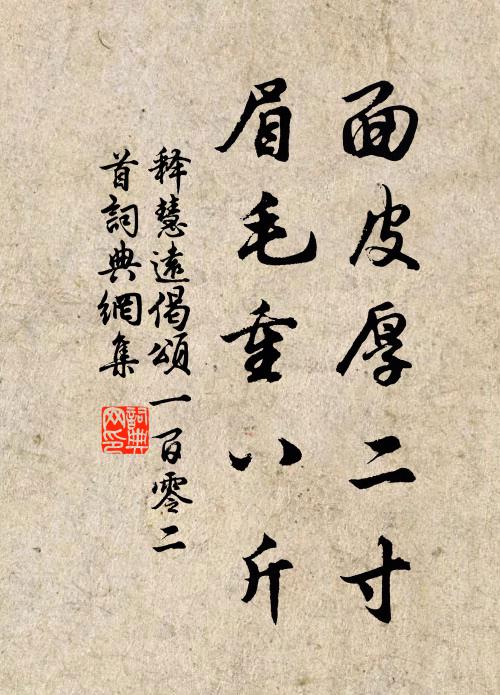 面皮厚二寸
眉毛重八斤
释慧遠偈頌一百零二
首詞典網集
詞典
网印